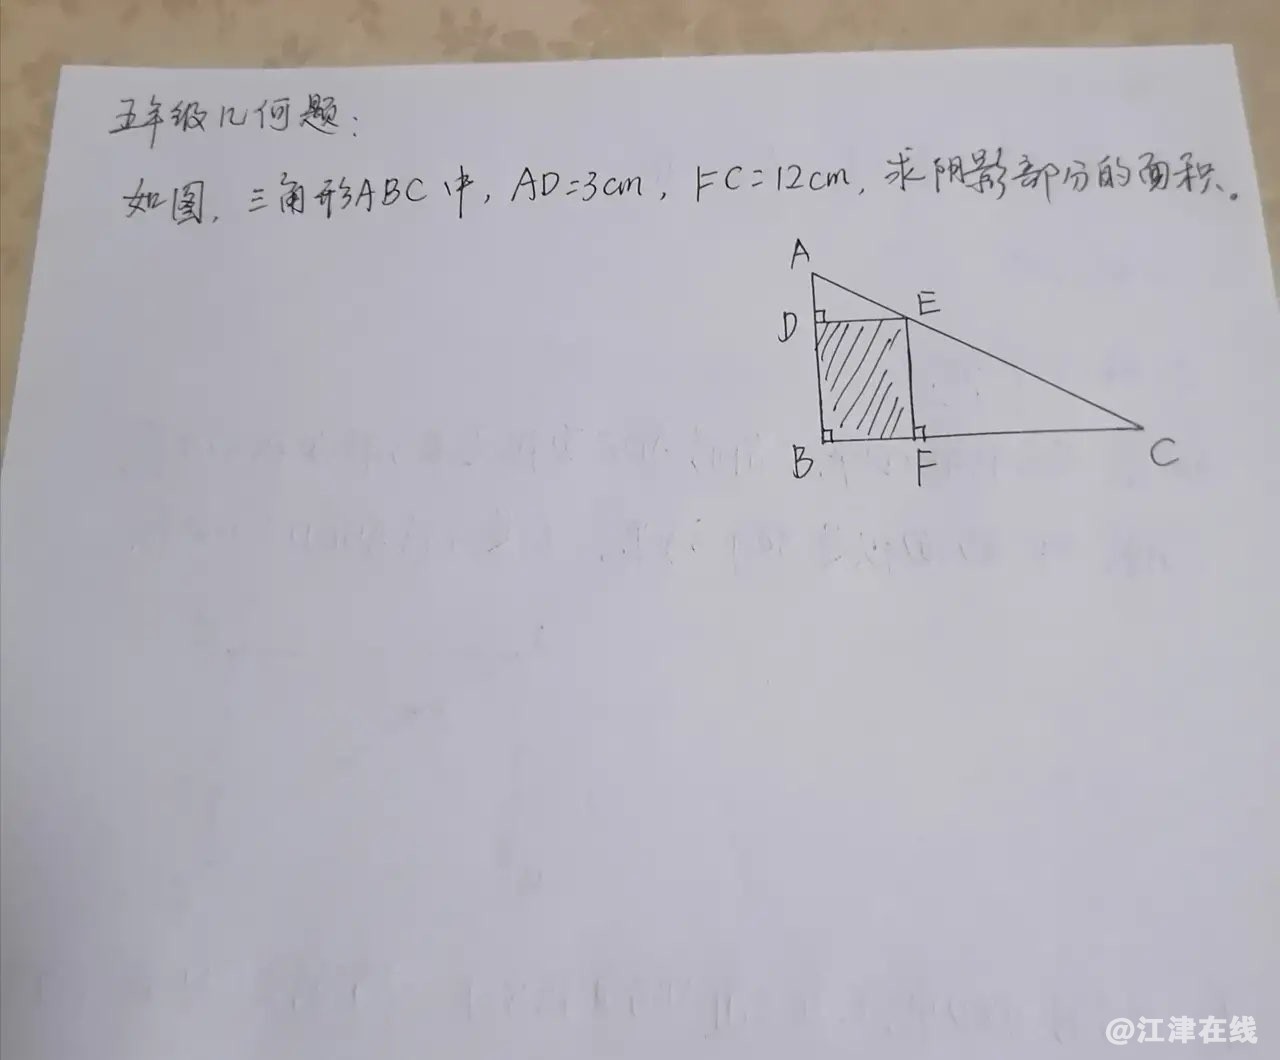 五年级几何题：
如图，三角形ABC中，AD=3cm，FC=12cm，求阴影部分的面积。
A
D
E
B
F
C
@江津在线